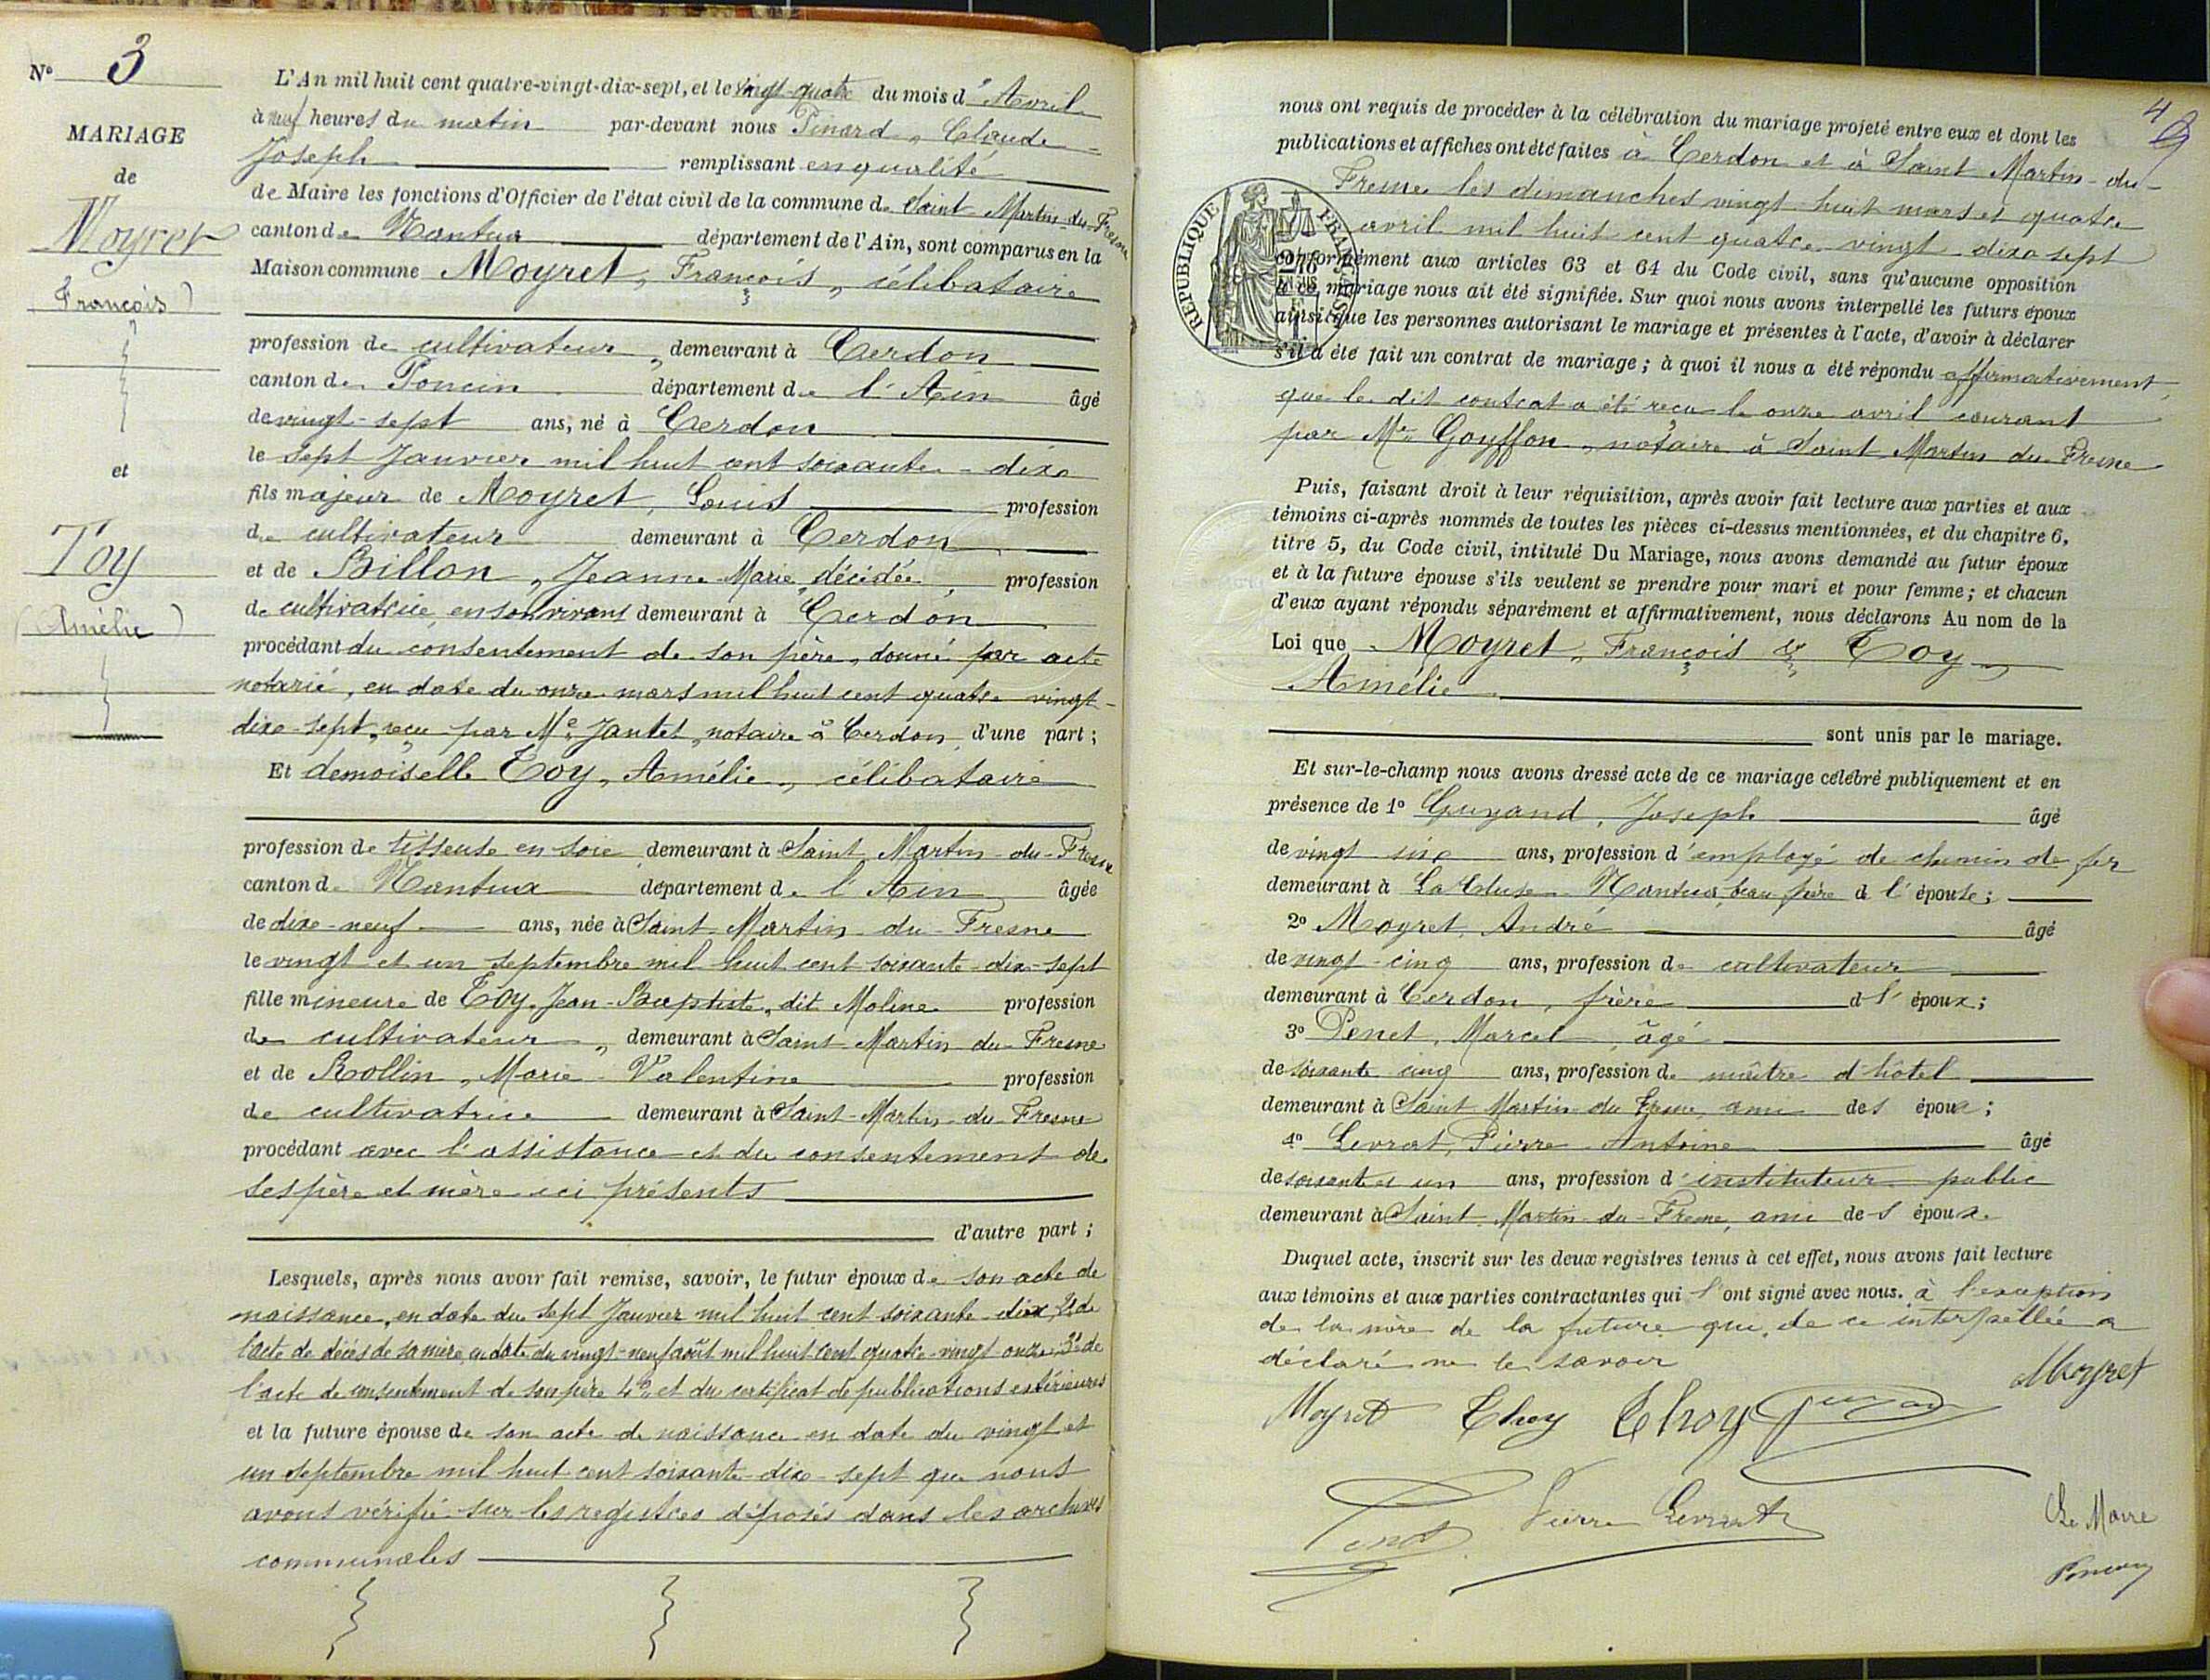 N° 3
MARIAGE
de
Moyret
(François)
et
Toy
(Amélie)
L'An mil huit cent quatre-vingt-dix-sept, et le vingt-quatre du mois d'Avril
à neuf heures du matin par-devant nous Pinard, Claude
Joseph remplissant en qualité
de Maire les fonctions d'Officier de l'état civil de la commune de Saint Martin-du-Fresne
canton de Nantua département de l'Ain, sont comparus en la
Maison commune Moyret, François, célibataire
profession de cultivateur, demeurant à Cerdon
canton de Poncin département de l'Ain âgé
de vingt-sept ans, né à Cerdon
le sept Janvier mil huit cent soixante-dix
fils majeur de Moyret, Louis profession
de cultivateur demeurant à Cerdon
et de Billon, Jeanne-Marie, décédée profession
de cultivatrice, en son vivant demeurant à Cerdon
procédant du consentement de son père, donné par acte
notarié, en date du onze mars mil huit cent quatre-vingt-
dix-sept, reçu par Me Jantet, notaire à Cerdon, d'une part ;
Et demoiselle Toy, Amélie, célibataire
profession de tisseuse en soie demeurant à Saint Martin-du-Fresne
canton de Nantua département de l'Ain âgée
de dix-neuf ans, née à Saint-Martin-du-Fresne
le vingt et un septembre mil huit cent soixante-dix-sept
fille mineure de Toy, Jean-Baptiste, dit Moline profession
de cultivateur, demeurant à Saint-Martin-du-Fresne
et de Rollin, Marie-Valentine profession
de cultivatrice demeurant à Saint-Martin-du-Fresne
procédant avec l'assistance et du consentement de
ses père et mère ici présents
d'autre part ;
Lesquels, après nous avoir fait remise, savoir, le futur époux de son acte de
naissance, en date du sept Janvier mil huit cent soixante-dix, 2° de
l'acte de décès de sa mère, en date du vingt-neuf août mil huit cent quatre-vingt-onze, 3° de
l'acte de consentement de son père 4° et du certificat de publications extérieures
et la future épouse de son acte de naissance en date du vingt et
un septembre mil huit cent soixante-dix-sept que nous
avons vérifié sur les registres déposés dans les archives
communales
4
nous ont requis de procéder à la célébration du mariage projeté entre eux et dont les
publications et affiches ont été faites à Cerdon et à Saint Martin-du-
Fresne les dimanches vingt-huit mars et quatre
avril mil huit cent quatre-vingt-dix-sept
RÉPUBLIQUE FRANÇAISE
conformément aux articles 63 et 64 du Code civil, sans qu'aucune opposition
à ce mariage nous ait été signifiée. Sur quoi nous avons interpellé les futurs époux
ainsi que les personnes autorisant le mariage et présentes à l'acte, d'avoir à déclarer
s'il a été fait un contrat de mariage ; à quoi il nous a été répondu affirmativement,
que le dit contrat a été reçu le onze avril courant
par Me Goyffon, notaire à Saint Martin du Fresne
Puis, faisant droit à leur réquisition, après avoir fait lecture aux parties et aux
témoins ci-après nommés de toutes les pièces ci-dessus mentionnées, et du chapitre 6,
titre 5, du Code civil, intitulé Du Mariage, nous avons demandé au futur époux
et à la future épouse s'ils veulent se prendre pour mari et pour femme ; et chacun
d'eux ayant répondu séparément et affirmativement, nous déclarons Au nom de la
Loi que Moyret, François & Toy,
Amélie
sont unis par le mariage.
Et sur-le-champ nous avons dressé acte de ce mariage célébré publiquement et en
présence de 1° Guyand, Joseph âgé
de vingt six ans, profession d'employé de chemin de fer
demeurant à La Cluse-Nantua, beau frère de l'épouse ;
2° Moyret, André âgé
de vingt-cinq ans, profession de cultivateur
demeurant à Cerdon, frère de l'époux ;
3° Penet, Marcel, âgé
de soixante-cinq ans, profession de maître d'hôtel
demeurant à Saint Martin-du-Fresne, ami des époux ;
4° Levrat, Pierre-Antoine âgé
de soixante et un ans, profession d'instituteur public
demeurant à Saint-Martin-du-Fresne, ami des époux.
Duquel acte, inscrit sur les deux registres tenus à cet effet, nous avons fait lecture
aux témoins et aux parties contractantes qui l'ont signé avec nous. à l'exception
de la mère de la future qui, de ce interpellée a
déclaré ne le savoir
Moyret
Moyret Thoy Thoy
Pierre Levrat
Le Maire